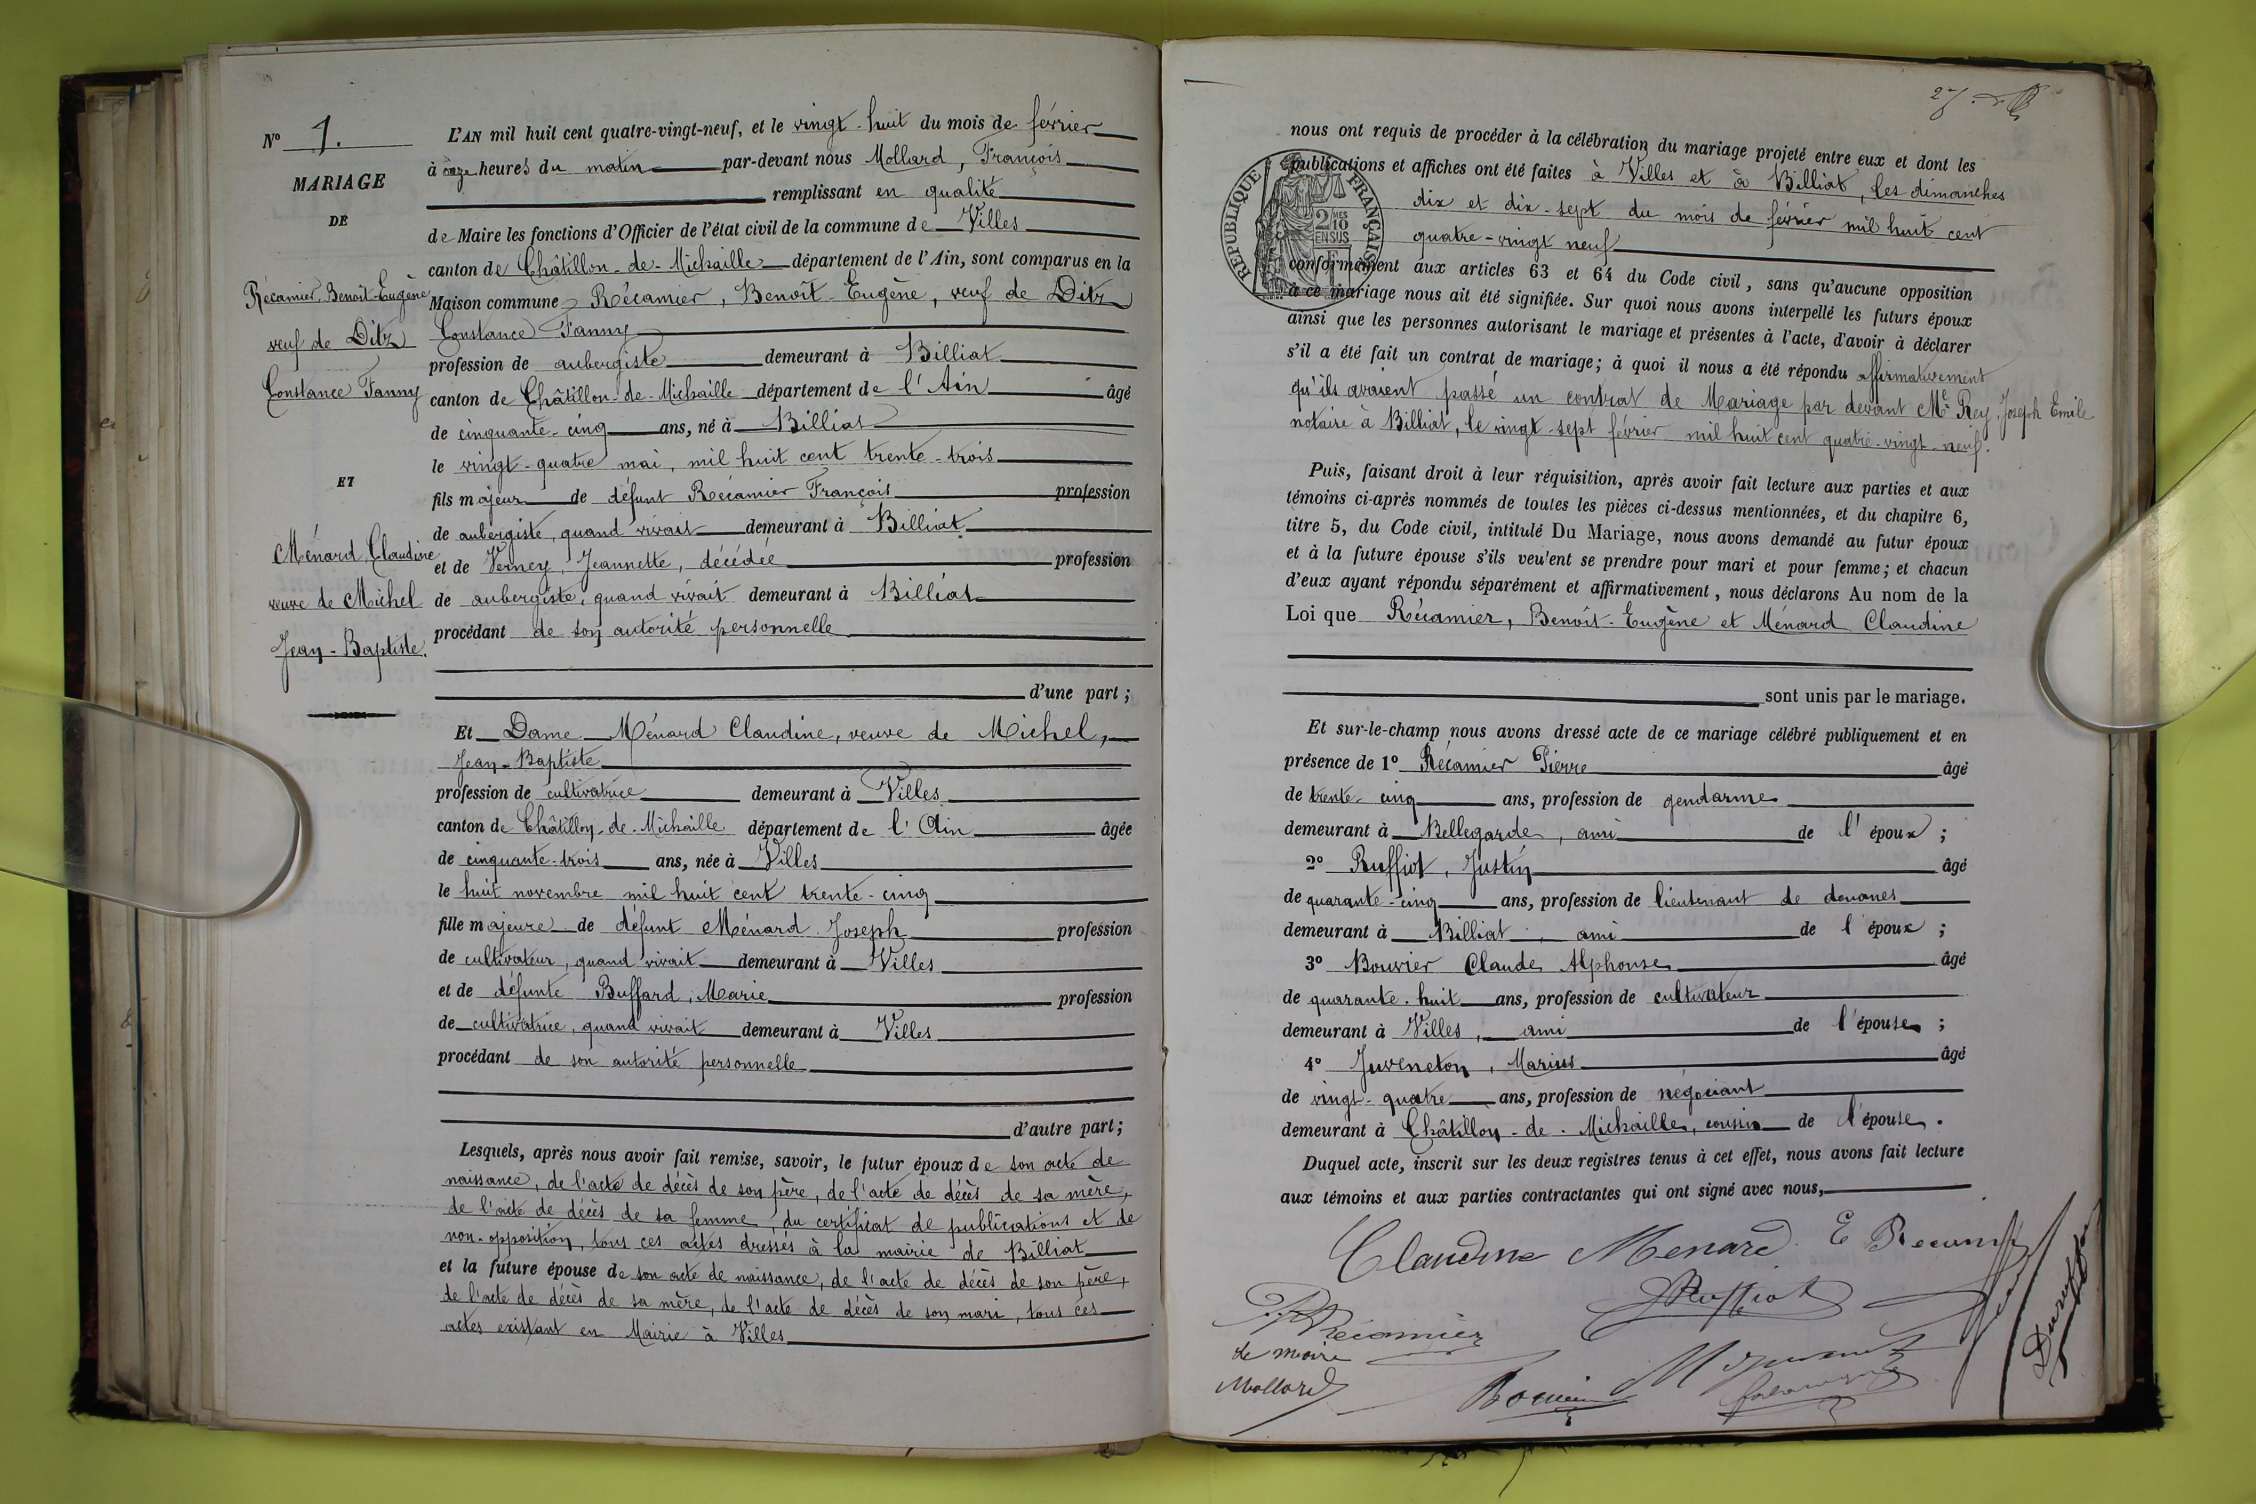 N° 1.
MARIAGE
DE
Récamier, Benoit-Eugène
veuf de Ditz
Constance Fanny
ET
Ménard, Claudine
veuve de Michel
Jean-Baptiste.
L'AN mil huit cent quatre-vingt-neuf, et le vingt-huit du mois de février
à onze heures du matin par-devant nous Mollard, François
remplissant en qualité
de Maire les fonctions d'Officier de l'état civil de la commune de Villes
canton de Châtillon-de-Michaille département de l'Ain, sont comparus en la
Maison commune Récamier, Benoît-Eugène, veuf de Ditz
Constance Fanny
profession de aubergiste demeurant à Billiat
canton de Châtillon-de-Michaille département de l'Ain âgé
de cinquante-cinq ans, né à Billiat
le vingt-quatre mai, mil huit cent trente-trois
fils majeur de défunt Récamier François profession
de aubergiste, quand vivait demeurant à Billiat
et de Verney, Jeannette, décédée profession
de aubergiste, quand vivait demeurant à Billiat
procédant de son autorité personnelle
d'une part ;
Et Dame Ménard Claudine, veuve de Michel,
Jean-Baptiste
profession de cultivatrice demeurant à Villes
canton de Châtillon-de-Michaille département de l'Ain âgée
de cinquante-trois ans, née à Villes
le huit novembre mil huit cent trente-cinq
fille majeure de défunt Ménard Joseph profession
de cultivateur, quand vivait demeurant à Villes
et de défunte Buffard, Marie profession
de cultivatrice, quand vivait demeurant à Villes
procédant de son autorité personnelle
d'autre part ;
Lesquels, après nous avoir fait remise, savoir, le futur époux de son acte de
naissance, de l'acte de décès de son père, de l'acte de décès de sa mère,
de l'acte de décès de sa femme, du certificat de publications et de
non-opposition, tous ces actes dressés à la mairie de Billiat
et la future épouse de son acte de naissance, de l'acte de décès de son père,
de l'acte de décès de sa mère, de l'acte de décès de son mari, tous ces
actes existant en Mairie à Villes
nous ont requis de procéder à la célébration du mariage projeté entre eux et dont les
publications et affiches ont été faites à Villes et à Billiat, les dimanches
dix et dix-sept du mois de février mil huit cent
quatre-vingt neuf
RÉPUBLIQUE FRANÇAISE
2 MES 10
EN SUS
conformément aux articles 63 et 64 du Code civil, sans qu'aucune opposition
à ce mariage nous ait été signifiée. Sur quoi nous avons interpellé les futurs époux
ainsi que les personnes autorisant le mariage et présentes à l'acte, d'avoir à déclarer
s'il a été fait un contrat de mariage; à quoi il nous a été répondu affirmativement
qu'ils avaient passé un contrat de Mariage par devant Me Rey, Joseph Emile
notaire à Billiat, le vingt-sept février mil huit cent quatre-vingt-neuf.
Puis, faisant droit à leur réquisition, après avoir fait lecture aux parties et aux
témoins ci-après nommés de toutes les pièces ci-dessus mentionnées, et du chapitre 6,
titre 5, du Code civil, intitulé Du Mariage, nous avons demandé au futur époux
et à la future épouse s'ils veu'ent se prendre pour mari et pour femme; et chacun
d'eux ayant répondu séparément et affirmativement, nous déclarons Au nom de la
Loi que Récamier, Benoît-Eugène et Ménard Claudine
sont unis par le mariage.
Et sur-le-champ nous avons dressé acte de ce mariage célébré publiquement et en
présence de 1° Récamier Pierre âgé
de trente-cinq ans, profession de gendarme
demeurant à Bellegarde, ami de l'époux ;
2° Ruffiot, Justin âgé
de quarante-cinq ans, profession de lieutenant de douanes
demeurant à Billiat, ami de l'époux ;
3° Bouvier Claude Alphonse âgé
de quarante-huit ans, profession de cultivateur
demeurant à Villes, ami de l'épouse ;
4° Juveneton, Marius âgé
de vingt-quatre ans, profession de négociant
demeurant à Châtillon-de-Michaille, cousin de l'épouse.
Duquel acte, inscrit sur les deux registres tenus à cet effet, nous avons fait lecture
aux témoins et aux parties contractantes qui ont signé avec nous,
Claudine Menard E Recamier
Ruffiot
Récamier
le maire
Mollard
Bouvier